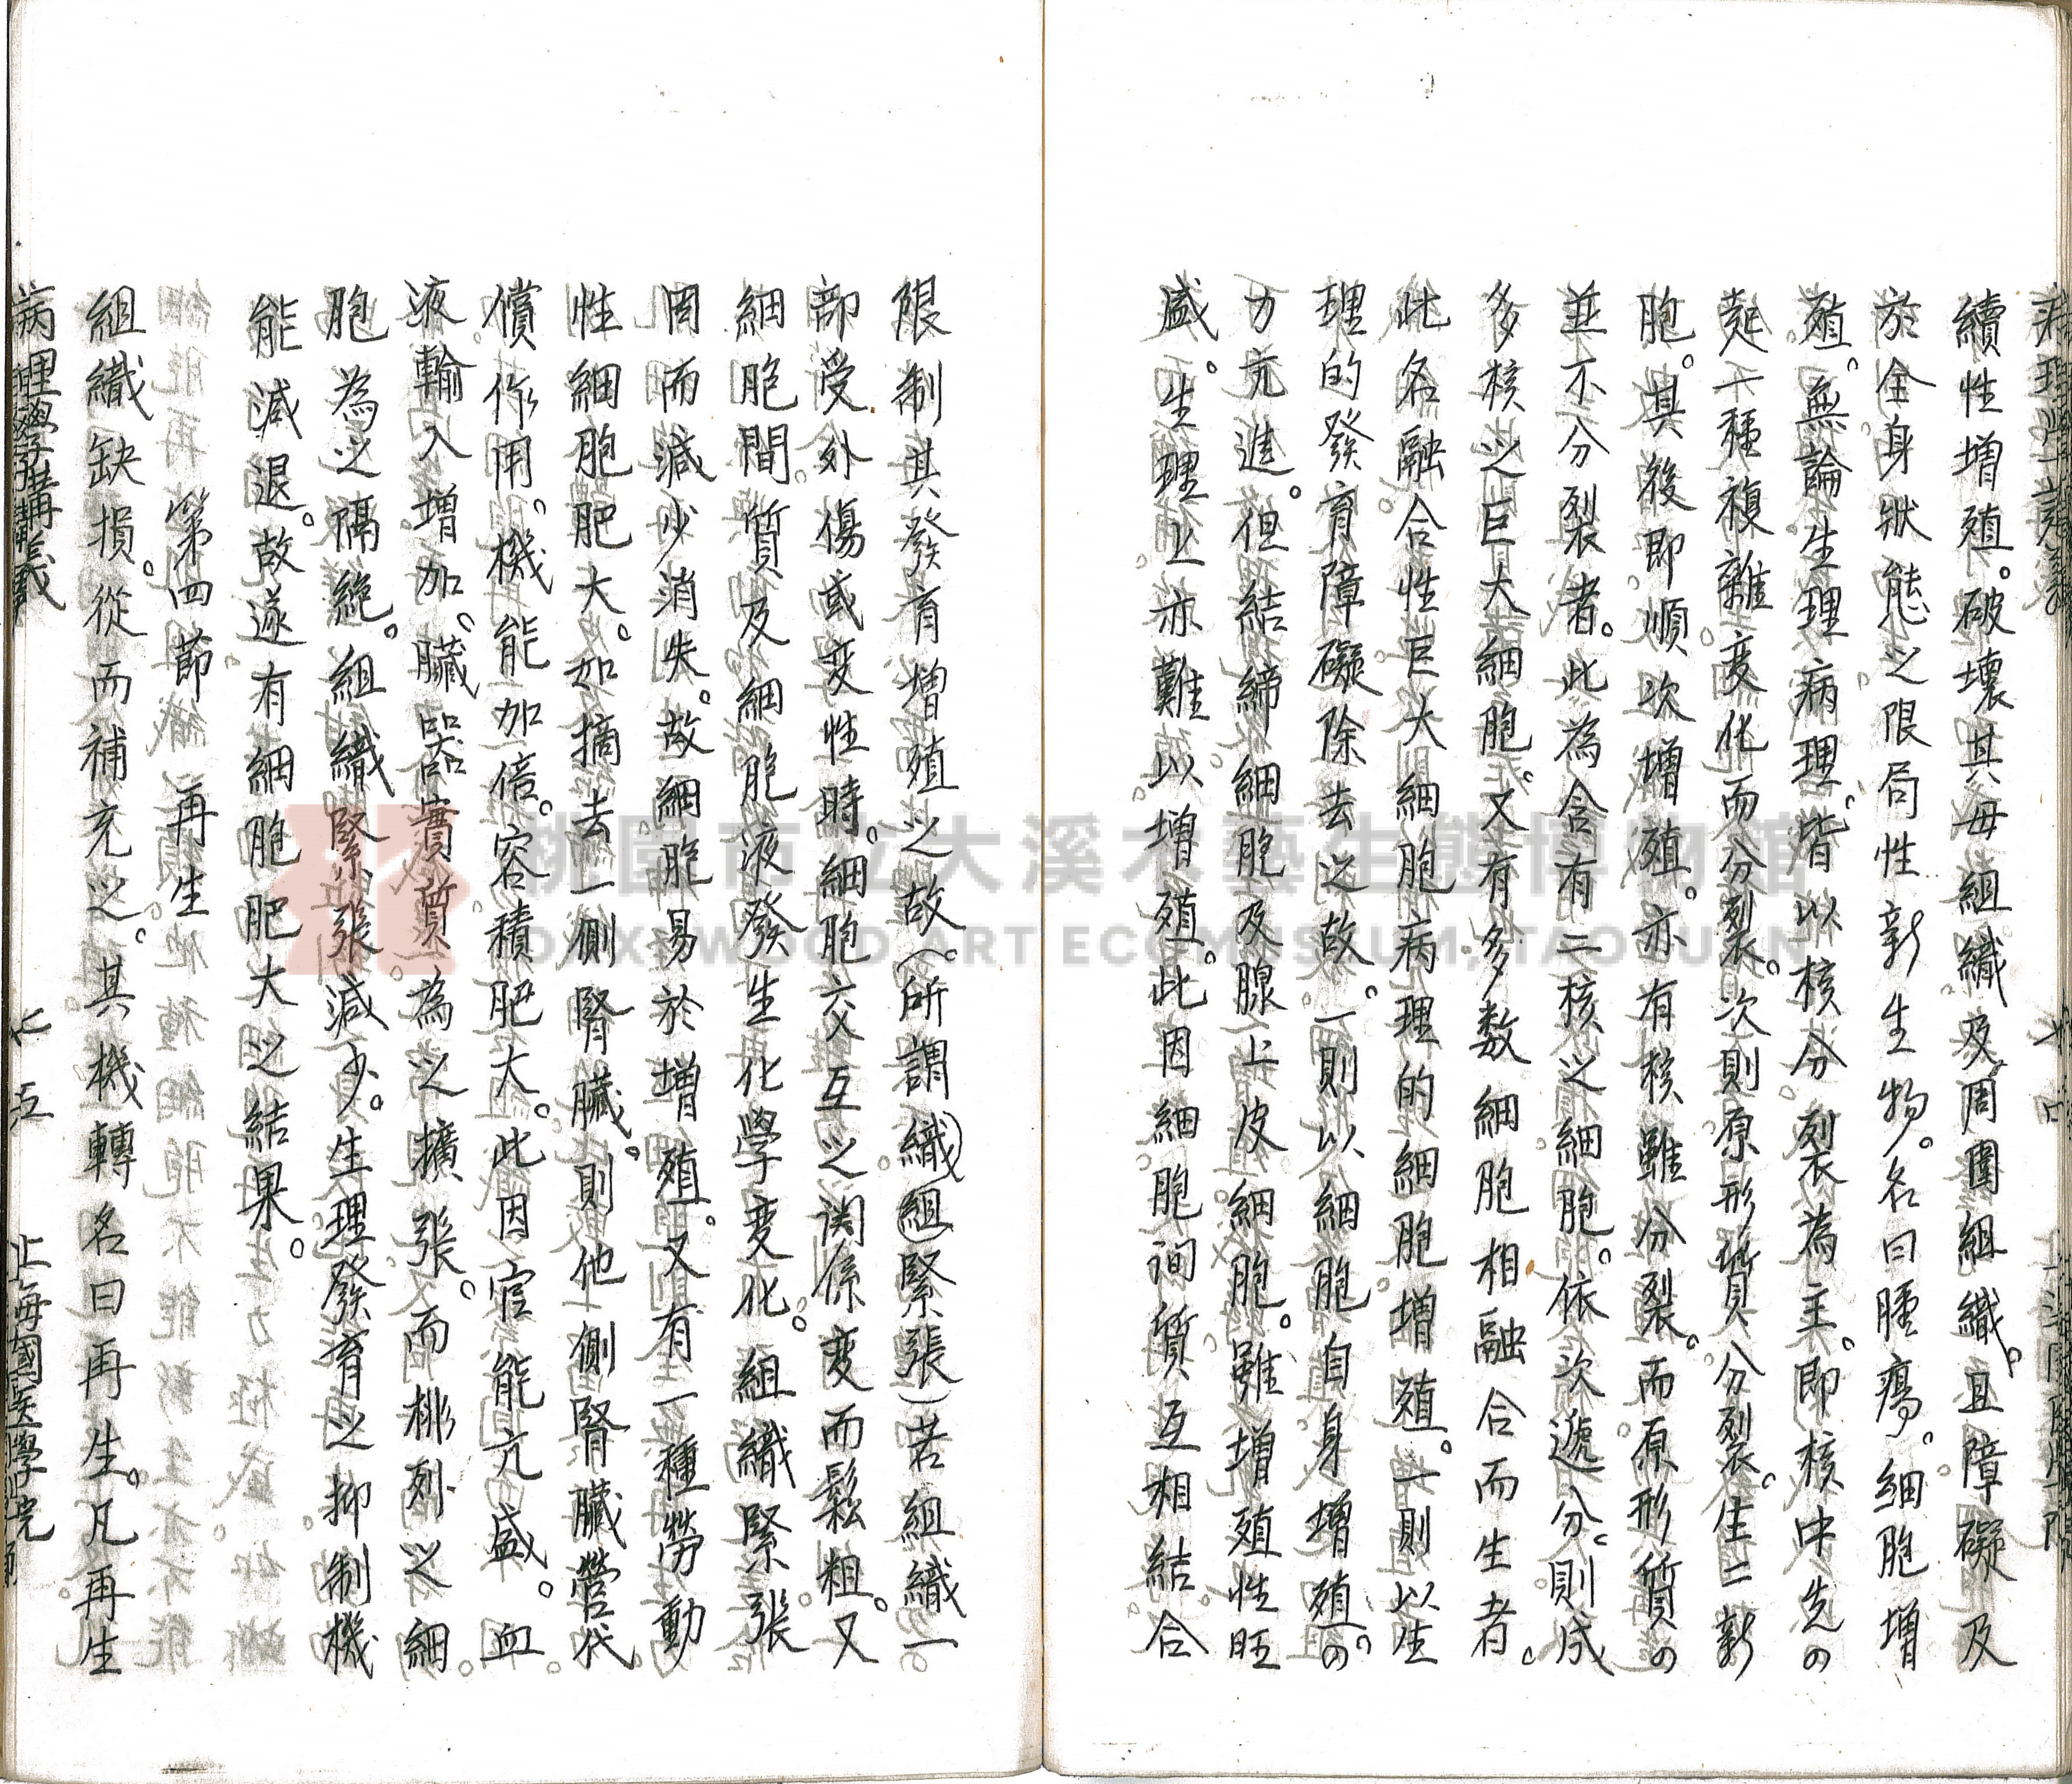 續性增殖。破壞其母組織及周圍組織。且障礙及
於全身狀態之限局性新生物。名曰腫瘍。細胞增
殖。無論生理病理。皆以核分裂為主。即核中先の
起一種複雜变化而分裂。次則原形質分裂。生二新
胞。其後即順次增殖。亦有核雖分裂。而原形質の
並不分裂者。此為含有二核之細胞。依次遞分。則成
多核之巨大細胞。又有多数細胞相融合而生者。
此名融合性巨大細胞病理的細胞增殖。一則以生
理的發育障礙除去之故。一則以細胞自身增殖の。
力亢進。但結締細胞及腺上皮細胞。雖增殖性旺
盛。生理上亦難以增殖。此因細胞间質互相結合
限制其發育增殖之故。(所謂織組緊張)若組織一
部受外傷或变性時。細胞交互之関係变而鬆粗。又
細胞間質及細胞液發生化學变化。組織緊張
因而減少消失。故細胞易於增殖。又有一種勞動
性細胞肥大。如摘去一側腎臟。則他側腎臟營代
償作用。機能加倍。容積肥大。此因官能亢盛。血
液輸入增加。臟器實質。為之擴張。而排列之細
胞為之隔絶。組織緊張減少。生理發育之抑制機
能減退。故遂有細胞肥大之結果。
第四節 再生
組織缺損。從而補充之。其機轉名曰再生。凡再生
病理學講義 七五 上海國医學院
桃園市立大溪木藝生態博物館
DAXI WOOD ART ECOMUSEUM, TAOYUAN